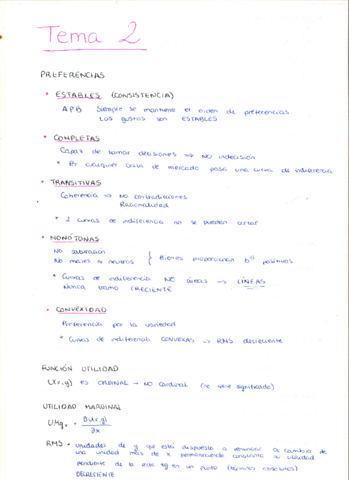 Tema 2
PREFERENCIAS
* ESTABLES (CONSISTENCIA)
APB Siempre se mantiene el orden de preferencias
Los gustos son ESTABLES
* COMPLETAS
Capaz de tomar decisiones → NO indecisión
* Por cualquier cesta de mercado pasa una curva de indiferencia
* TRANSITIVAS
Coherencia → No contradicciones
Racionalidad
* 2 curvas de indiferencia no se pueden cortar
* MONÓTONAS
No saturación
No males ni neutros } Bienes proporcionan bº positivos
* Curvas de indiferencia NO áreas → LÍNEAS
Nunca tramo CRECIENTE
* CONVEXIDAD
Preferencia por la variedad
* Curvas de indiferencia CONVEXAS → RMS decreciente
FUNCIÓN UTILIDAD
U(x,y) es ORDINAL → NO cardinal (no tiene significado)
UTILIDAD MARGINAL
UMgx = ∂U(x,y) / ∂x
RMS = unidades de y que está dispuesto a renunciar a cambio de
una unidad más de x permaneciendo constante su utilidad
pendiente de la recta tg en un punto (términos absolutos)
DECRECIENTE